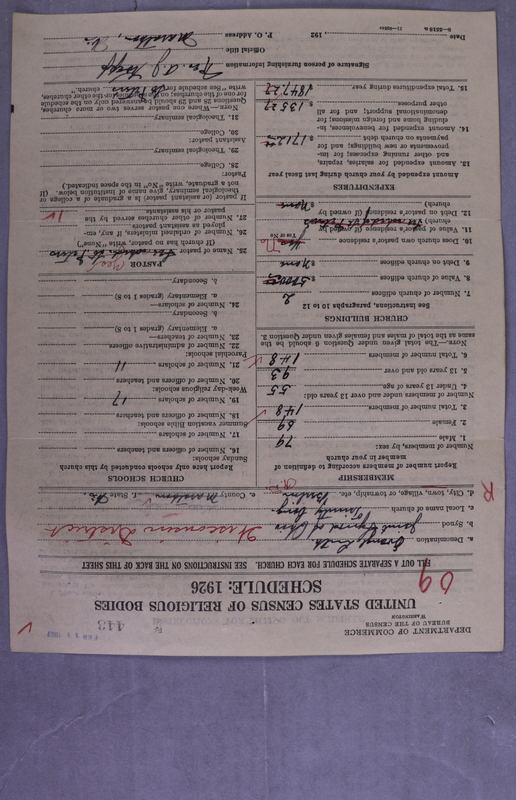 DEPARTMENT OF COMMERCE
BUREAU OF THE CENSUS
WASHINGTON
443
UNITED STATES CENSUS OF RELIGIOUS BODIES
SCHEDULE: 1926
FILL OUT A SEPARATE SCHEDULE FOR EACH CHURCH. SEE INSTRUCTIONS ON THE BACK OF THIS SHEET
a. Denomination
b. Synod Joint Synod of Ohio
Wisconsin District
c. Local name of church Trinity
d. City, town, village, or township, etc. Berlin
e. County Marathon f. State Wis.
MEMBERSHIP
Report number of members according to definition of member in your church
Number of members, by sex:
1. Male 79
2. Female 69
3. Total number of members 148
Number of members under and over 13 years old:
4. Under 13 years of age 55
5. 13 years old and over 93
6. Total number of members 148
Note.—The total given under Question 6 should be the same as the total of males and females given under Question 3.
CHURCH BUILDINGS
See instructions, paragraphs 10 to 12
7. Number of church edifices 2
8. Value of church edifices $
9. Debt on church edifices $ None
10. Does church own pastor's residence No
Yes or No
11. Value of pastor's residence (if owned by church) $
12. Debt on pastor's residence (if owned by church) $ None
EXPENDITURES
Amount expended by your church during last fiscal year
13. Amount expended for salaries, repairs, and other running expenses; for improvements or new buildings; and for payments on church debt $
14. Amount expended for benevolences, including home and foreign missions; for denominational support; and for all other purposes $ 135.27
15. Total expenditures during year $ 1847.27
CHURCH SCHOOLS
Report here only schools conducted by this church
Sunday schools:
16. Number of officers and teachers
17. Number of scholars
Summer vacation Bible schools:
18. Number of officers and teachers
19. Number of scholars 17
Week-day religious schools:
20. Number of officers and teachers
21. Number of scholars 11
Parochial schools:
22. Number of administrative officers
23. Number of teachers—
a. Elementary (grades 1 to 8)
b. Secondary
24. Number of scholars—
a. Elementary (grades 1 to 8)
b. Secondary
PASTOR
25. Name of pastor
(If church has no pastor, write "None")
26. Number of ordained ministers, if any, employed as assistants
27. Number of other churches served by the pastor or his assistants
If pastor (or assistant pastor) is a graduate of a college or Theological seminary, give name of institution below. (If not a graduate, write "No" in the space indicated.)
Pastor:
28. College
29. Theological seminary
Assistant pastor:
30. College
31. Theological seminary
Note.—Where one pastor serves two or more churches, Questions 28 and 29 should be answered only on the schedule for one of the churches; on the schedules for the other churches, write "See schedule for St Peters church."
Signature of person furnishing information
Official title
P. O. Address Marathon, Wis
Date 192